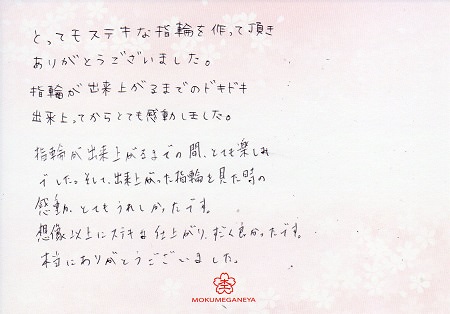 とってもステキな指輪を作って頂き
ありがとうございました。
指輪が出来上がるまでのドキドキ
出来上ってからとても感動しました。
指輪が出来上がるまでの間、とても楽しみ
でした。そして、出来上がった指輪を見た時の
感動、とてもうれしかったです。
想像以上にステキな仕上がり、すごく良かったです。
本当にありがとうございました。
MOKUMEGANEYA